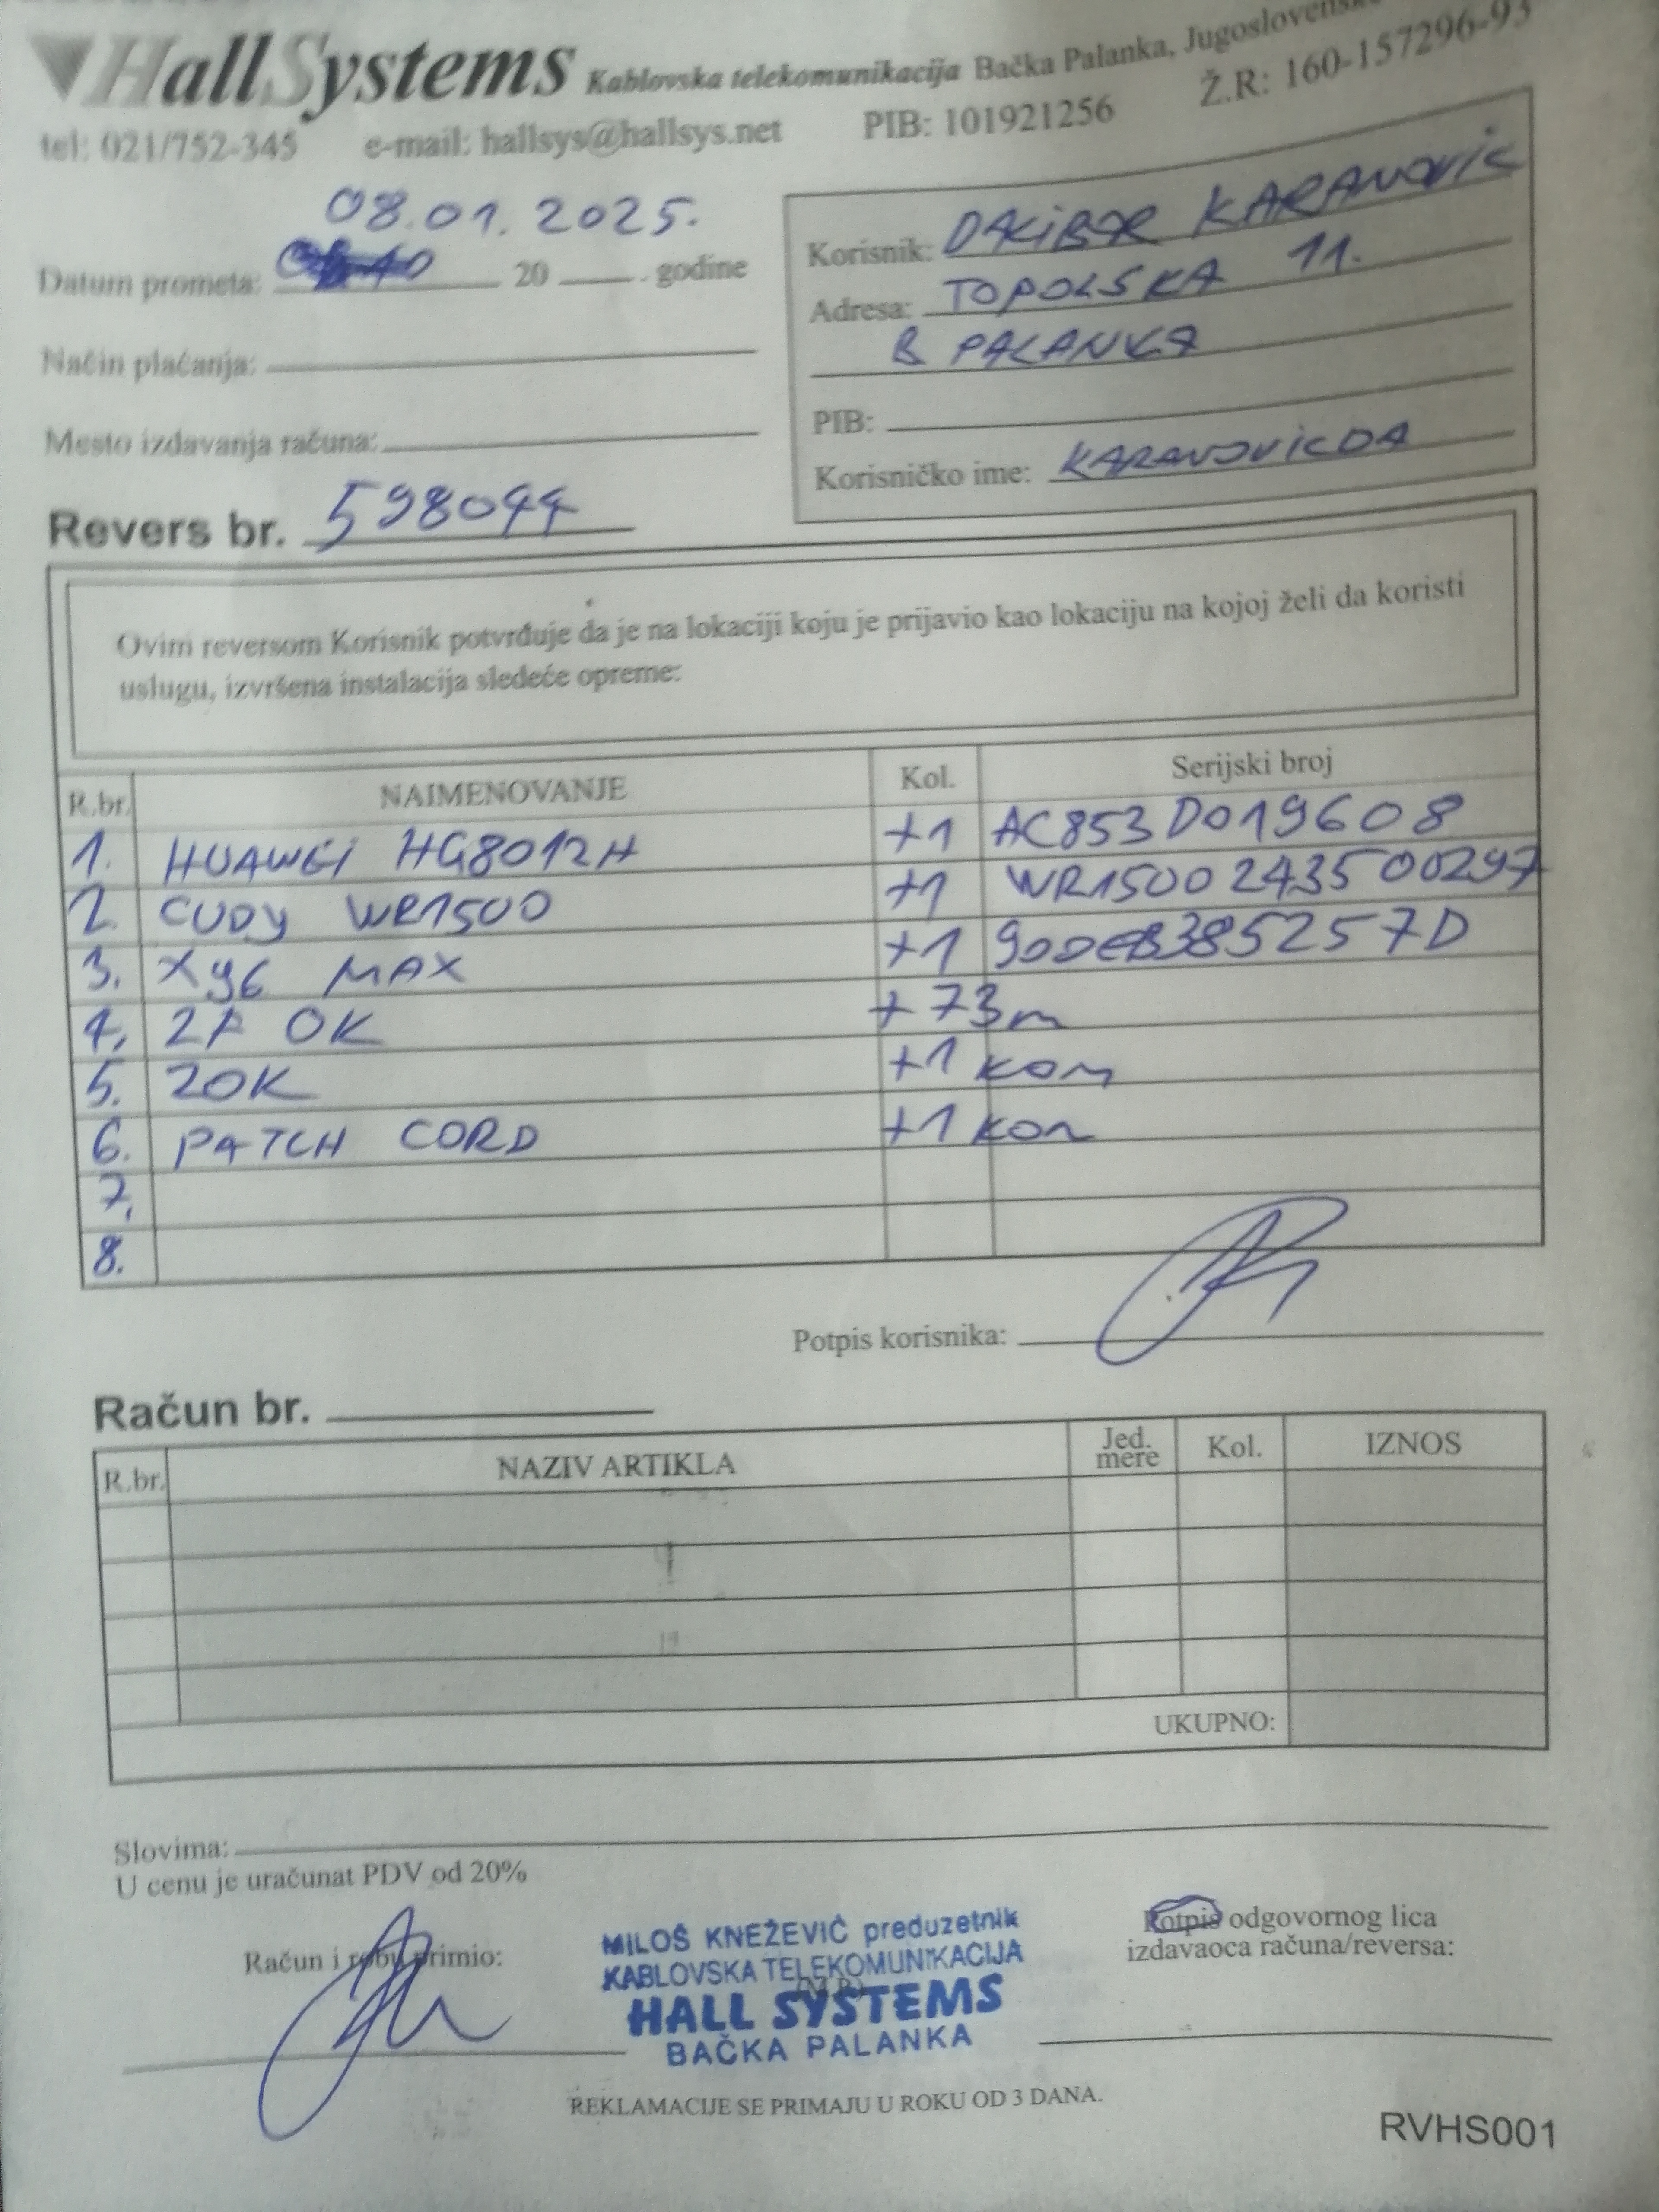 HallSystems Kablovska telekomunikacija Bačka Palanka, Jugoslovenske
tel: 021/752-345 e-mail: hallsys@hallsys.net PIB: 101921256 Ž.R: 160-157296-93
08.01.2025.
Datum prometa: 20 . godine
Način plaćanja:
Mesto izdavanja računa:
Revers br. 598044
Korisnik: DALIBOR KARANOVIC
Adresa: TOPOLSKA 11.
B PALANKA
PIB:
Korisničko ime: KARANOVICDA
Ovim reversom Korisnik potvrđuje da je na lokaciji koju je prijavio kao lokaciju na kojoj želi da koristi
uslugu, izvršena instalacija sledeće opreme:
R.br. NAIMENOVANJE Kol. Serijski broj
1. HUAWEI HG8012H +1 AC853D019608
2. CUDY WR1500 +1 WR1500243500297
3. X96 MAX +1 90DEB385257D
4. OK +73m
5. 2OK +1 kom
6. PATCH CORD +1 kom
7.
8.
Potpis korisnika:
Račun br.
R.br. NAZIV ARTIKLA Jed. mere Kol. IZNOS
UKUPNO:
Slovima:
U cenu je uračunat PDV od 20%
Račun i robu primio:
MILOŠ KNEŽEVIĆ preduzetnik
KABLOVSKA TELEKOMUNIKACIJA
HALL SYSTEMS
BAČKA PALANKA
Potpis odgovornog lica
izdavaoca računa/reversa:
REKLAMACIJE SE PRIMAJU U ROKU OD 3 DANA.
RVHS001